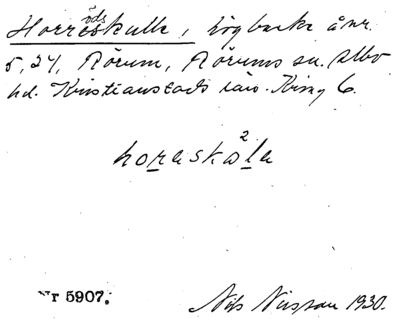 Horrödskulle, högbacke å nr.
5, 24, Rörum, Rörums sn. Albo
hd. Kristianstads län. Ring 6.
horaskola
Nr 5907.
Nils Nilsson 1930.